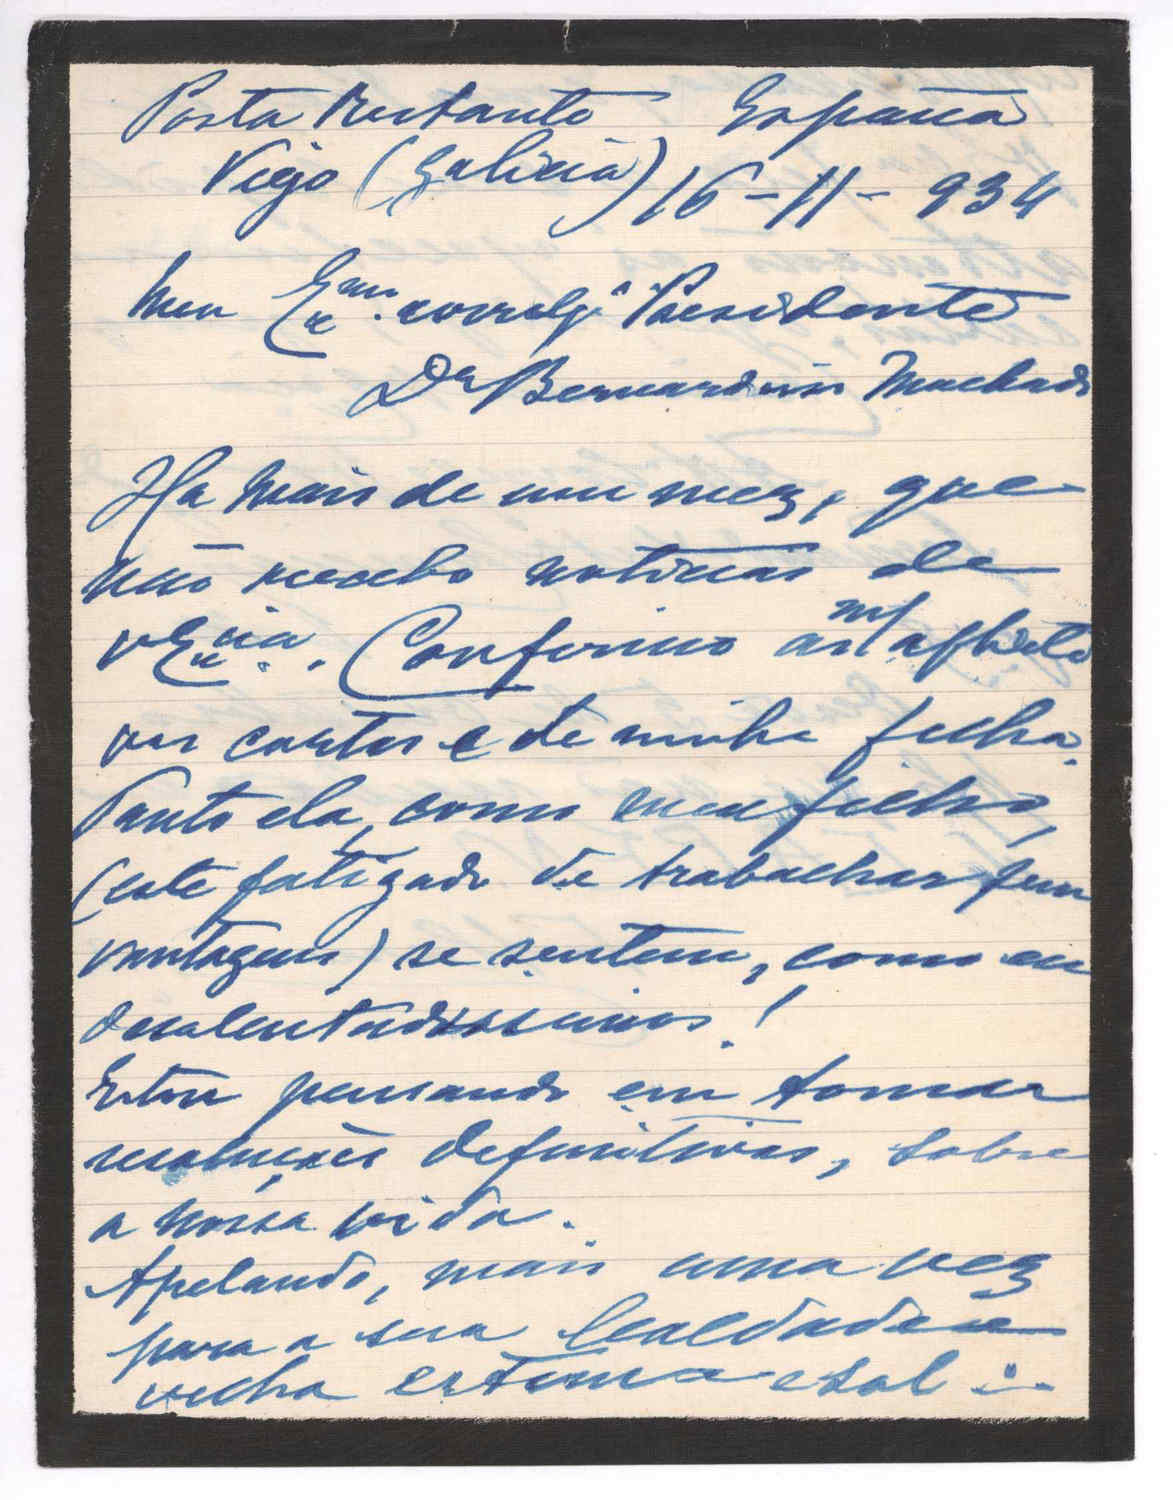 Posta Restante España
Vigo (Galicia) 16-11-934
Meu Exmo. correlgº Presidente
Dr Bernardino Machado
Ha mais de um mez, que
não recebo noticias de
V Excia. Confirmo as mª aflicti
vas cartas e de minha filha.
Tanto ela, como meu filho,
(este fatigado de trabalhar sem
vantagens) se sentem, como eu
desalentadissimos!
Estou pensando em tomar
resoluções definitivas, sobre
a nossa vida.
Apelando, mais uma vez
para a sua lealdade e
velha estima